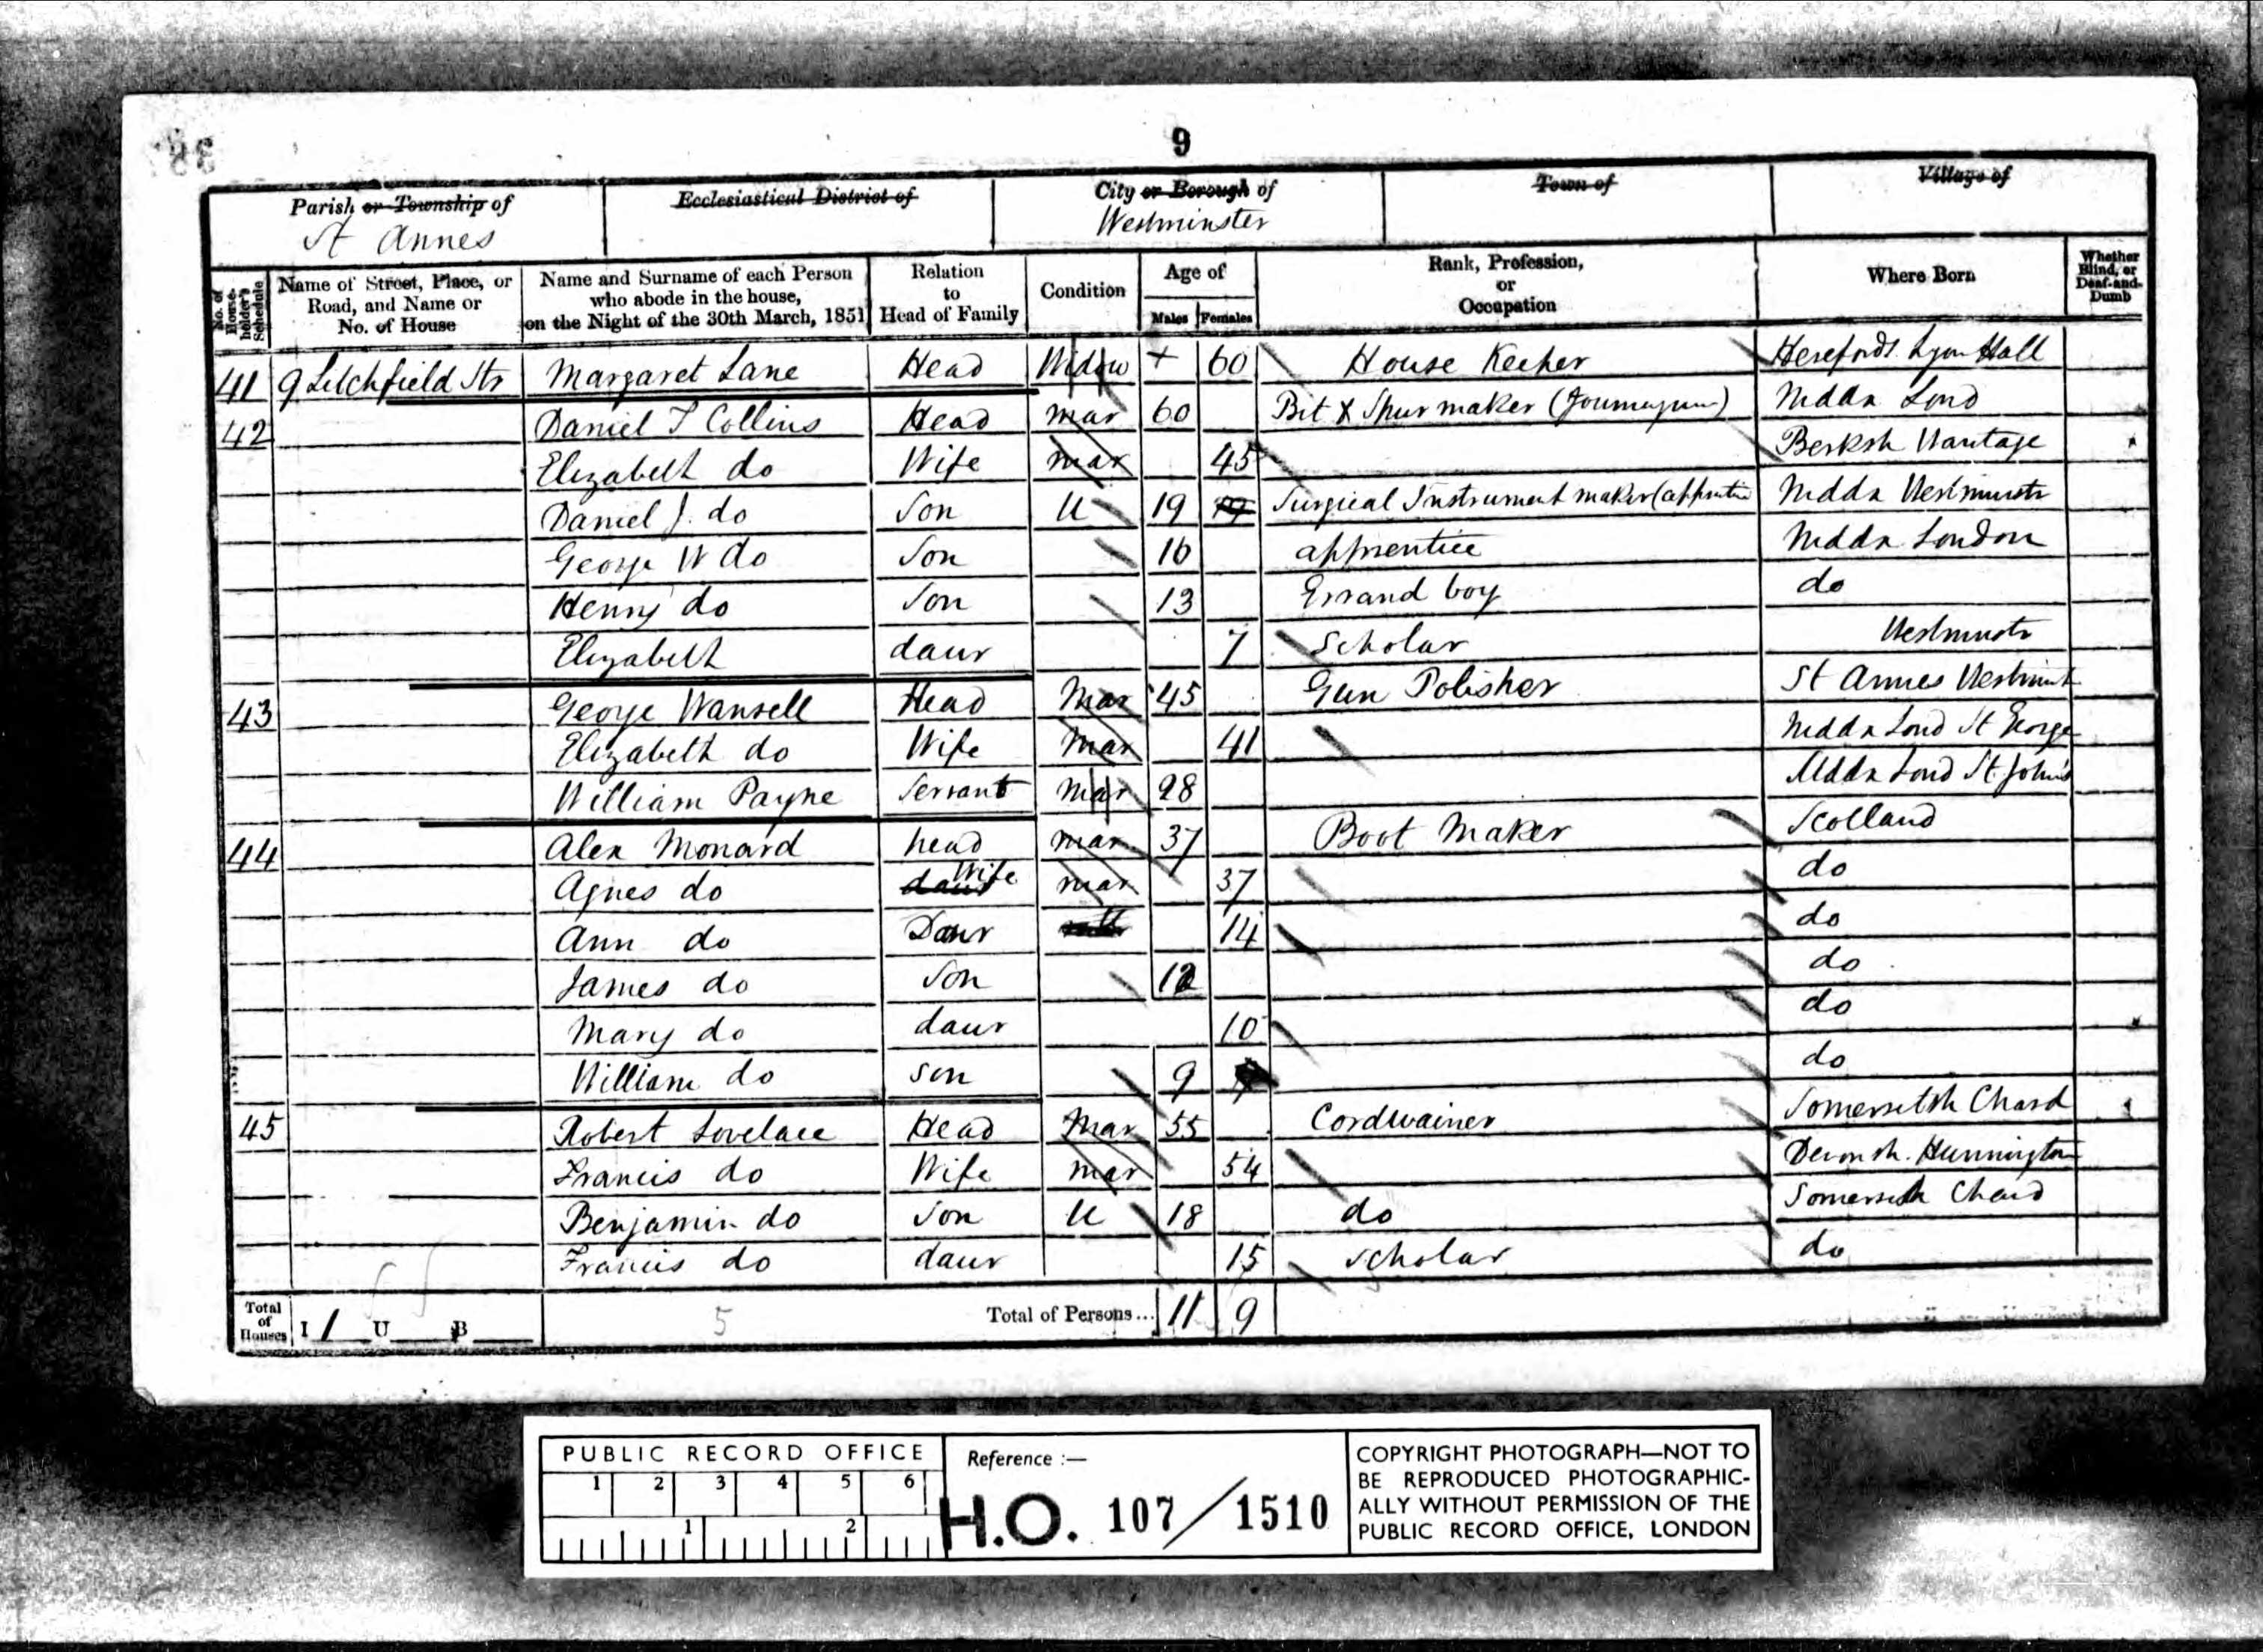 9
Parish or Township of
St Annes
Ecclesiastical District of
City or Borough of
Westminster
Town of
Village of
No. of House-holder's Schedule
Name of Street, Place, or Road, and Name or No. of House
Name and Surname of each Person who abode in the house, on the Night of the 30th March, 1851
Relation to Head of Family
Condition
Age of
Males Females
Rank, Profession, or Occupation
Where Born
Whether Blind, or Deaf-and-Dumb
41 9 Litchfield Str Margaret Lane Head Widow + 60 House Keeper Herefords. Lyon Hall
42 Daniel T Collins Head mar 60 Bit & Spur maker (Journeyman) Middx Lond
Elizabeth do Wife mar 45 Berksh Wantage
Daniel J. do Son U 19 Surgical Instrument maker (apprentice Middx Westminstr
George W do Son 16 apprentice Middx London
Henry do Son 13 Errand boy do
Elizabeth daur 7 Scholar Westminstr
43 George Wansell Head Mar 45 Gun Polisher St Annes Westminst
Elizabeth do Wife Mar 41 Middx Lond St George
William Payne Servant Mar 28 Middx Lond St. John's
44 Alex Monard head mar 37 Boot Maker Scotland
Agnes do daur Wife mar 37 do
Ann do Daur 14 do
James do Son 12 do
Mary do daur 10 do
William do son 9 do
45 Robert Lovelace Head Mar 55 Cordwainer Somersetsh Chard
Francis do Wife mar 54 Devonsh. Hunnington
Benjamin do Son U 18 do Somersetsh Chard
Francis do daur 15 Scholar do
Total of Houses I 1 U B
5
Total of Persons... 11 9
PUBLIC RECORD OFFICE
1 2 3 4 5 6
1 2
Reference :—
H.O. 107/1510
COPYRIGHT PHOTOGRAPH—NOT TO
BE REPRODUCED PHOTOGRAPHIC-
ALLY WITHOUT PERMISSION OF THE
PUBLIC RECORD OFFICE, LONDON